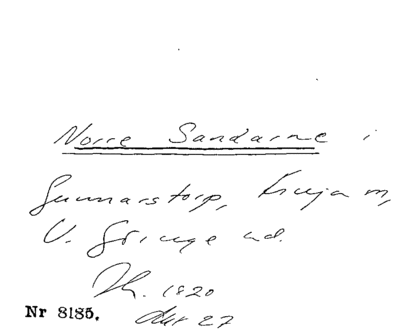 Norre Sandarne i
Gunnarstorp, Fruja m,
V. Göinge hd.
Th. 1820
Nr 8185. Akt 27